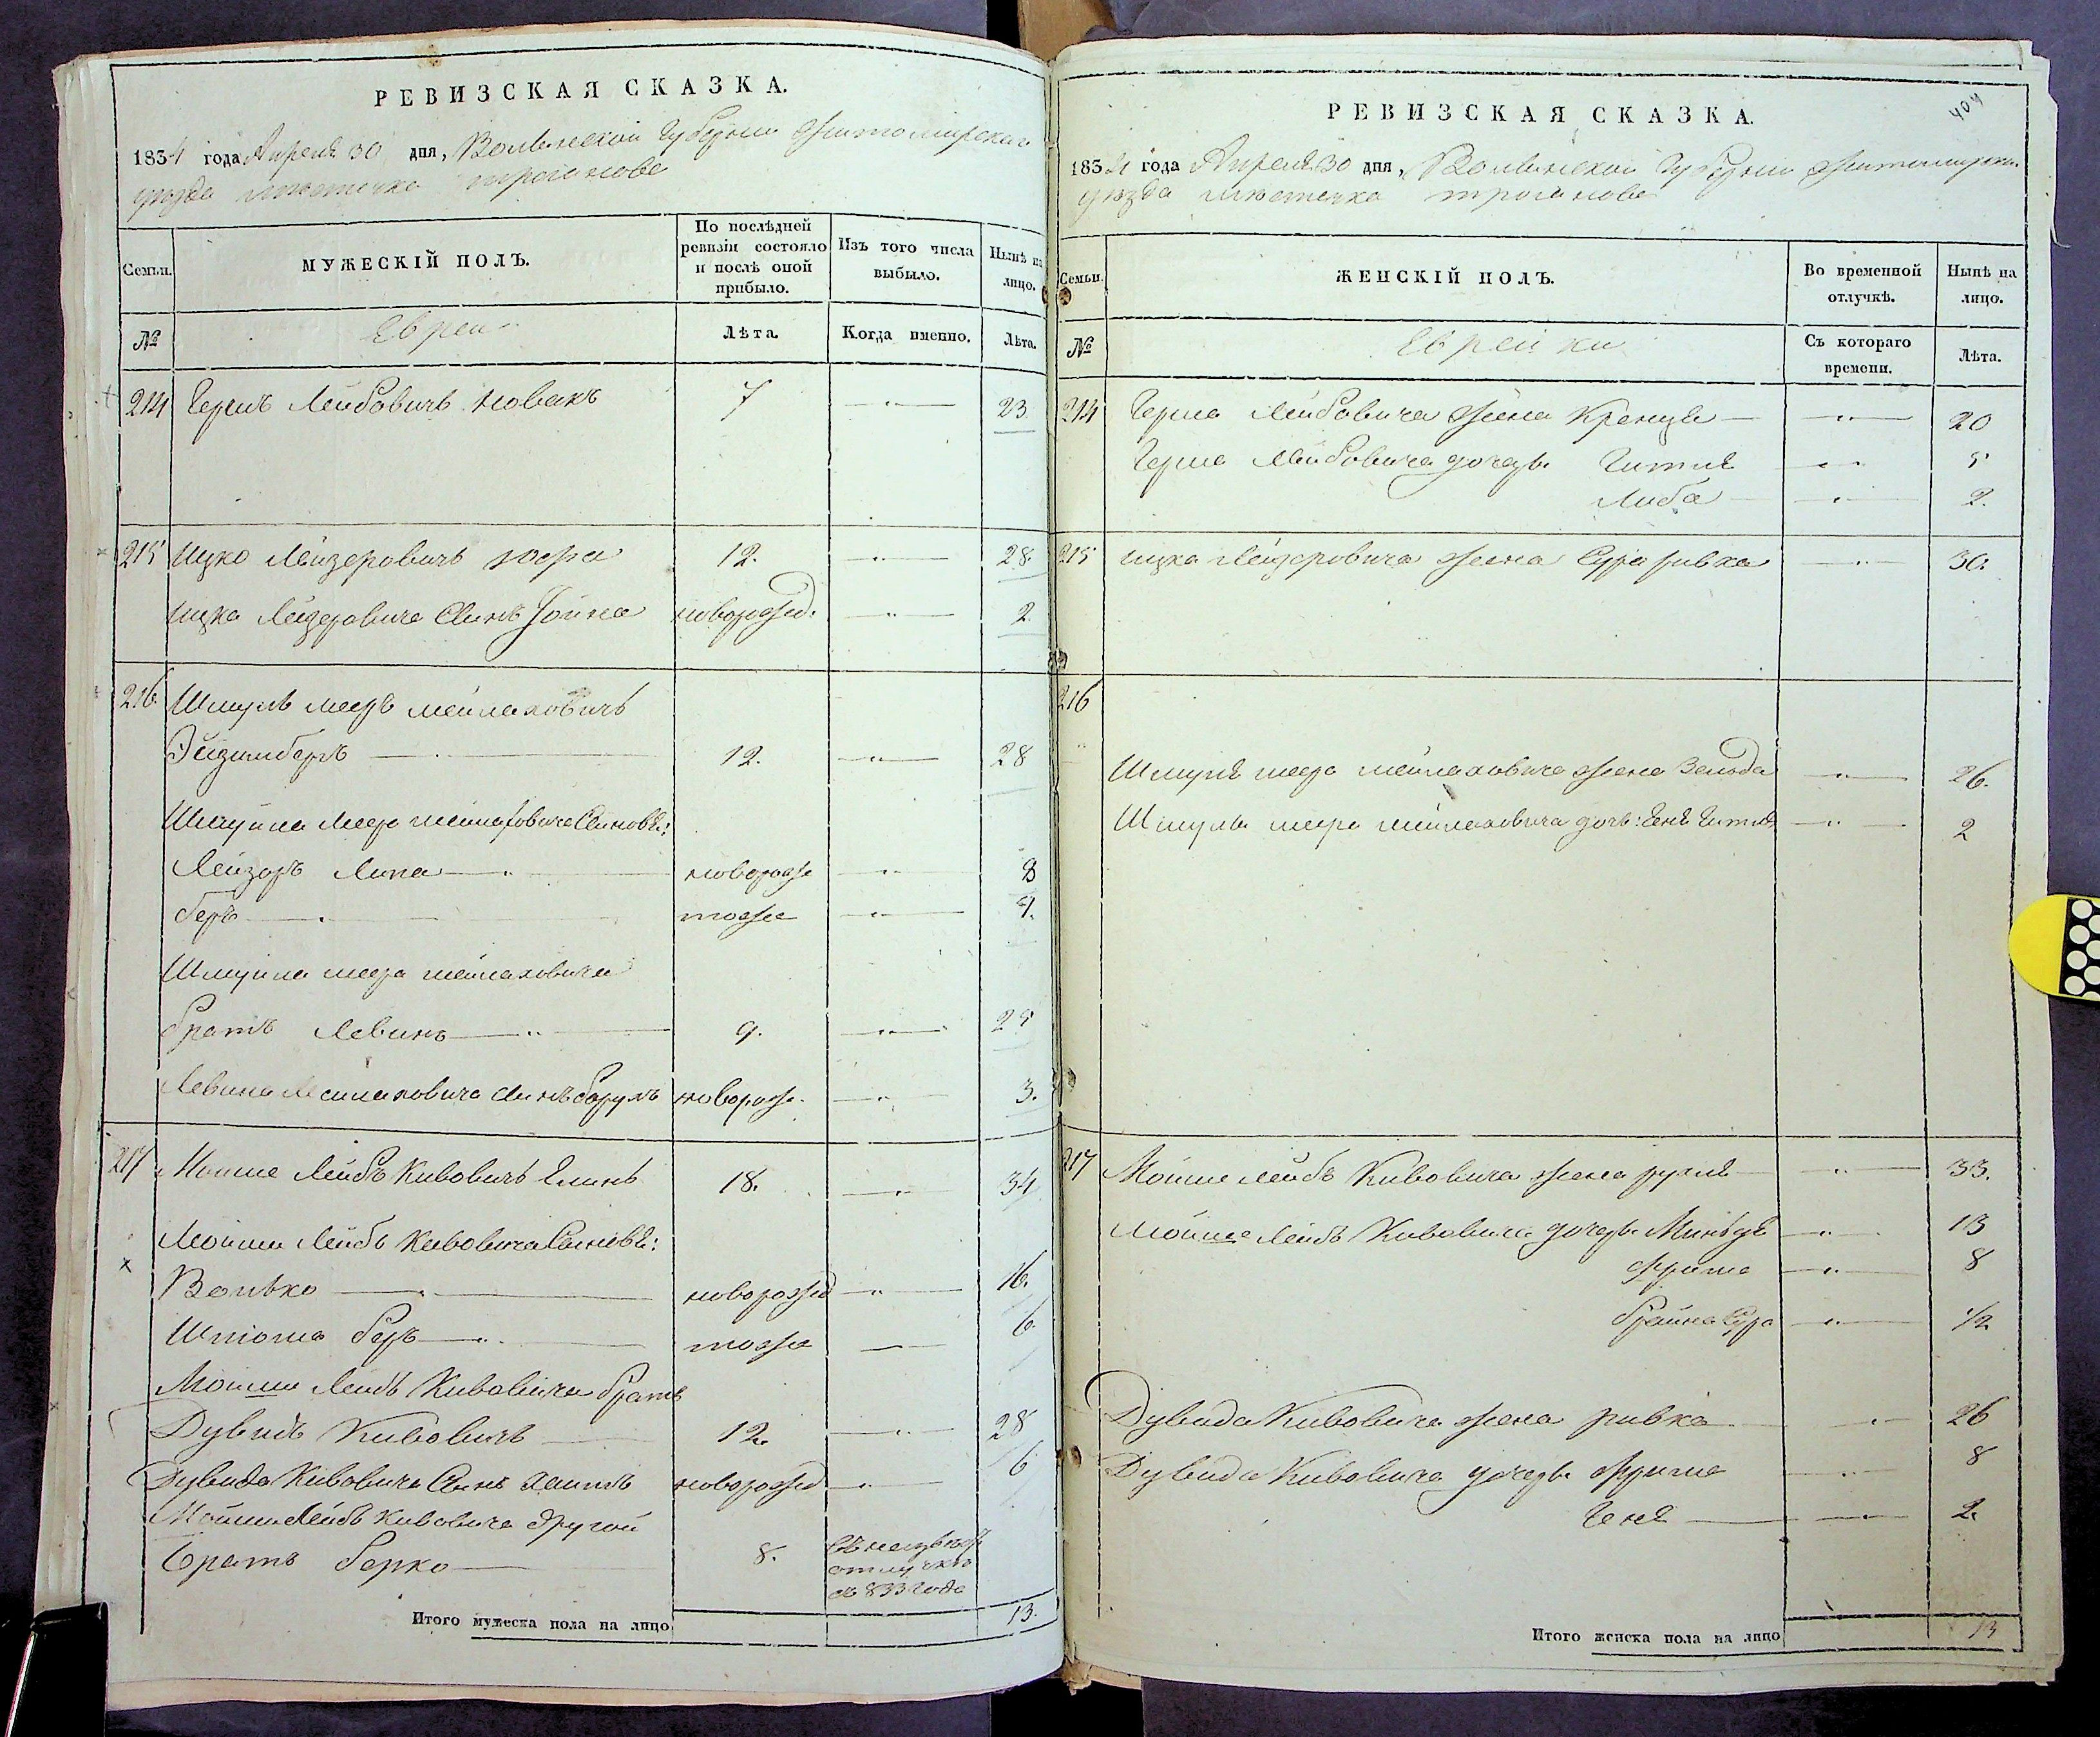 РЕВИЗСКАЯ СКАЗКА.
1834 года Апреля 30 дня, Волынской Губернии Житомирского
уезда местечка троянова
Семьи. МУЖЕСКІЙ ПОЛЪ. По послѣдней ревизіи состояло и послѣ оной прибыло. Изъ того числа выбыло. Нынѣ на лицо.
№ Евреи Лѣта. Когда именно. Лѣта.
214 Гершъ Лейбовичъ Новакъ 7 23
215 Ицко Лейзеровичъ 12. 28.
Ицка Лейзеровича Сынъ новорожд. 2.
216. Шмуль мееръ мейлаховичъ
12. 28
Шмуйла меера мейлаховича Сыновья:
Лейзоръ Липа новорож 8
беръ тоже
Шмуйла меера мейлаховича
братъ Левинъ 9. 25
Левина Мейлаховича Сынъ новорож. 3.
217 Мойше Лейбъ Кивовичъ 18. 34
Мойши Лейбъ Кивовича Сыновья:
Волько новорожд 16.
беръ тоже 6.
Мойши Лейбъ Кивовича братъ
Дувидъ Кивовичъ 12. 28
Дувида Кивовича Сынъ новорожд 6
Мойши Лейбъ Кивовича другой
братъ берко 8.
отлучкѣ
съ 833 года
Итого мужеска пола на лицо 13.
404
РЕВИЗСКАЯ СКАЗКА.
1834 года Апреля 30 дня, Волынской Губернии Житомирскаго
уезда местечка троянова
Семьи. ЖЕНСКІЙ ПОЛЪ. Во временной отлучкѣ. Нынѣ на лицо.
№ Еврейки Съ котораго времени. Лѣта.
214 Герша Лейбовича жена 20
Герша Лейбовича дочерь Гитля 5
Либа 2.
215 ицка Лейзеровича жена Сура ривка 30.
216
Шмуля меера мейлаховича жена Зельда 26.
Шмуль меера мейлаховича дочь: Гитля 2
217 Мойше Лейбъ Кивовича жена рухля 33.
Мойше Лейбъ Кивовича дочерь 13
фрима 8
брайна Сура 1/2
Дувида Кивовича жена ривка 26
Дувида Кивовича дочерь фрима 8
Геня 2.
Итого женска пола на лицо 13